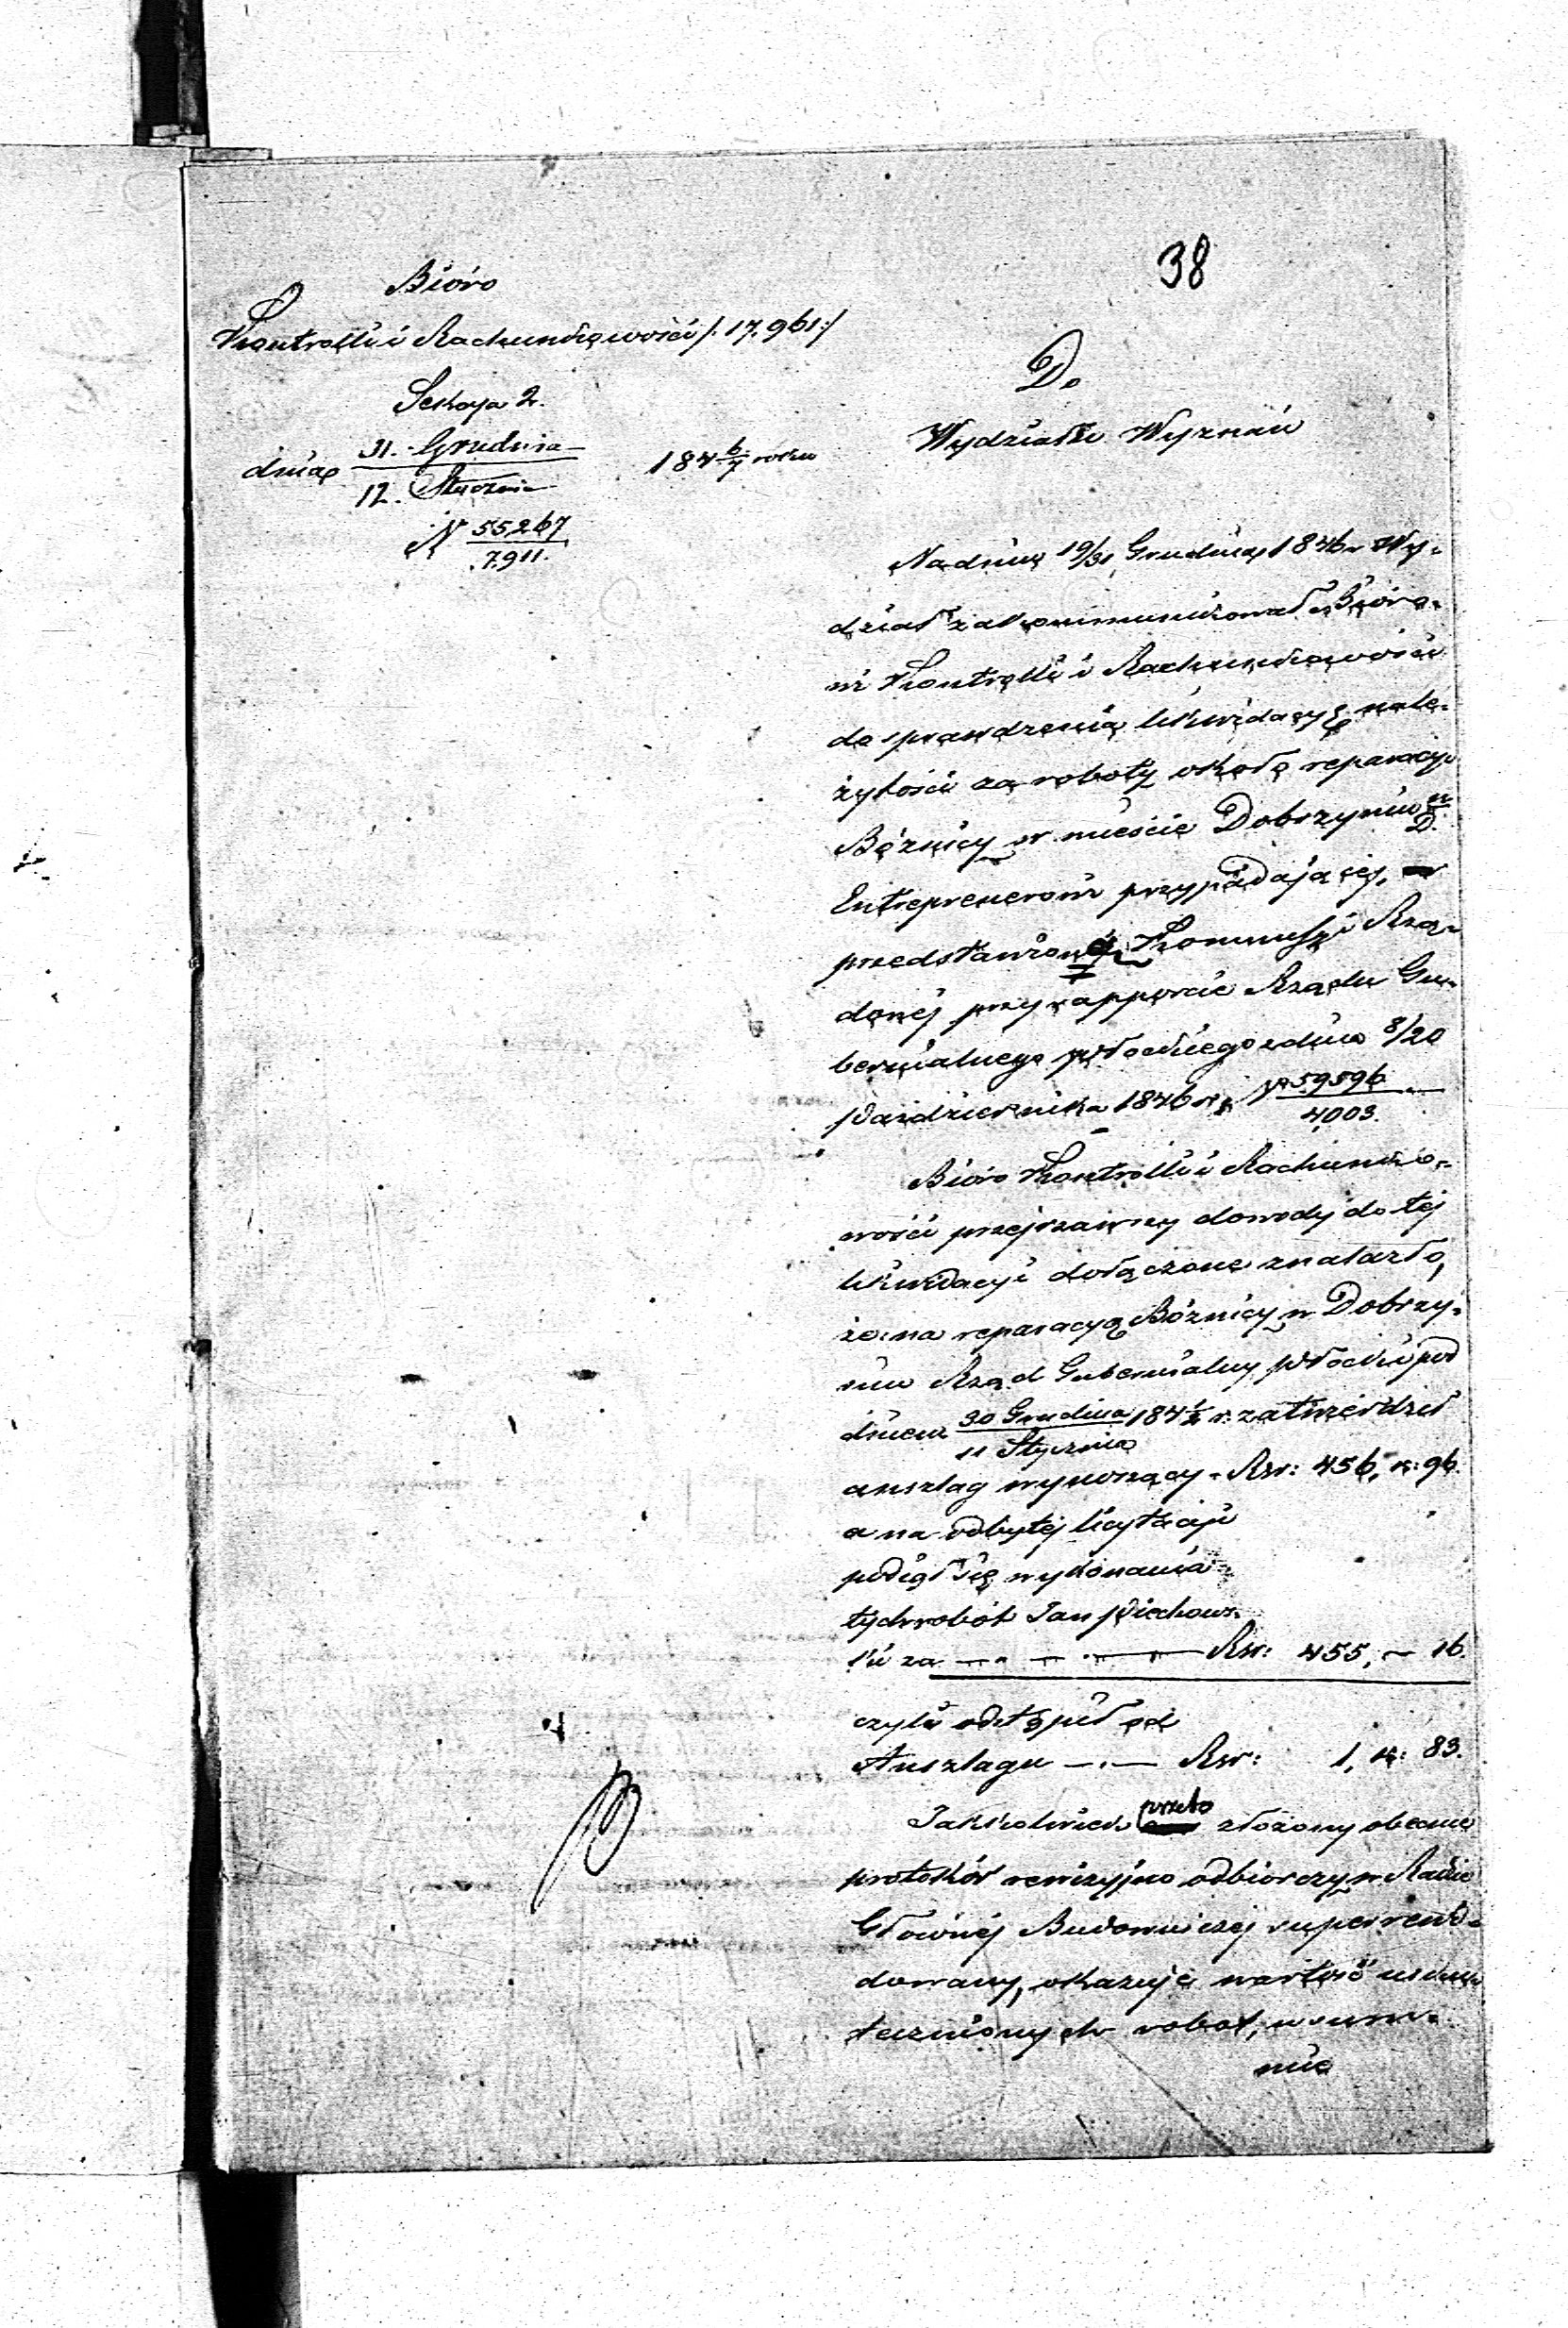 38
Bióro
Kontrolli i Rachunkowości /:17,961:/
Sekcya 2.
dnia 31. Grudnia / 12. Stycznia 184 6/7 roku
N 55267 / 7911.
Do
Wydziału Wyznań
Na dniu 19/31 Grudnia 1846 r Wy-
dział zakommunikował Bióro-
wi Kontrolli i Rachunkowości
do sprawdzenia likwidacyę nale-
żytości za roboty około reparacyi
Bóżnicy w mieście Dobrzyniu n/D.
Entreprenerowi przypadającej,
przedstawioną Kommissyi Rzą-
dowej przy rapporcie Rządu Gu-
bernialnego Płockiego z dnia 8/20
Października 1846 r. N 59596 / 4003.
Bióro Kontrolli i Rachunko-
wości przejrzawszy dowody do tej
likwidacyi dołączone znalazło,
że na reparacyą Bóżnicy w Dobrzy-
niu Rząd Gubernialny Płocki pod
dniem 30 Grudnia / 11 Stycznia 184 1/2 r. zatwierdził
anszlag wynoszący - Rsr: 456, k: 96.
a na odbytej licytacji
podjął się wykonania
tych robót Jan Piechows-
ki za — — — Rsr: 455, — 16.
czyli odstąpił od
Anszlagu — . — Rsr: 1, k: 83.
Jakkolwiek przeto złożony obecnie
protokół rewizyjno odbiorczy w Radzie
Głównej Budowniczej superrewi-
dowany, okazuje wartość usku-
tecznionych robot, w sum-
mie